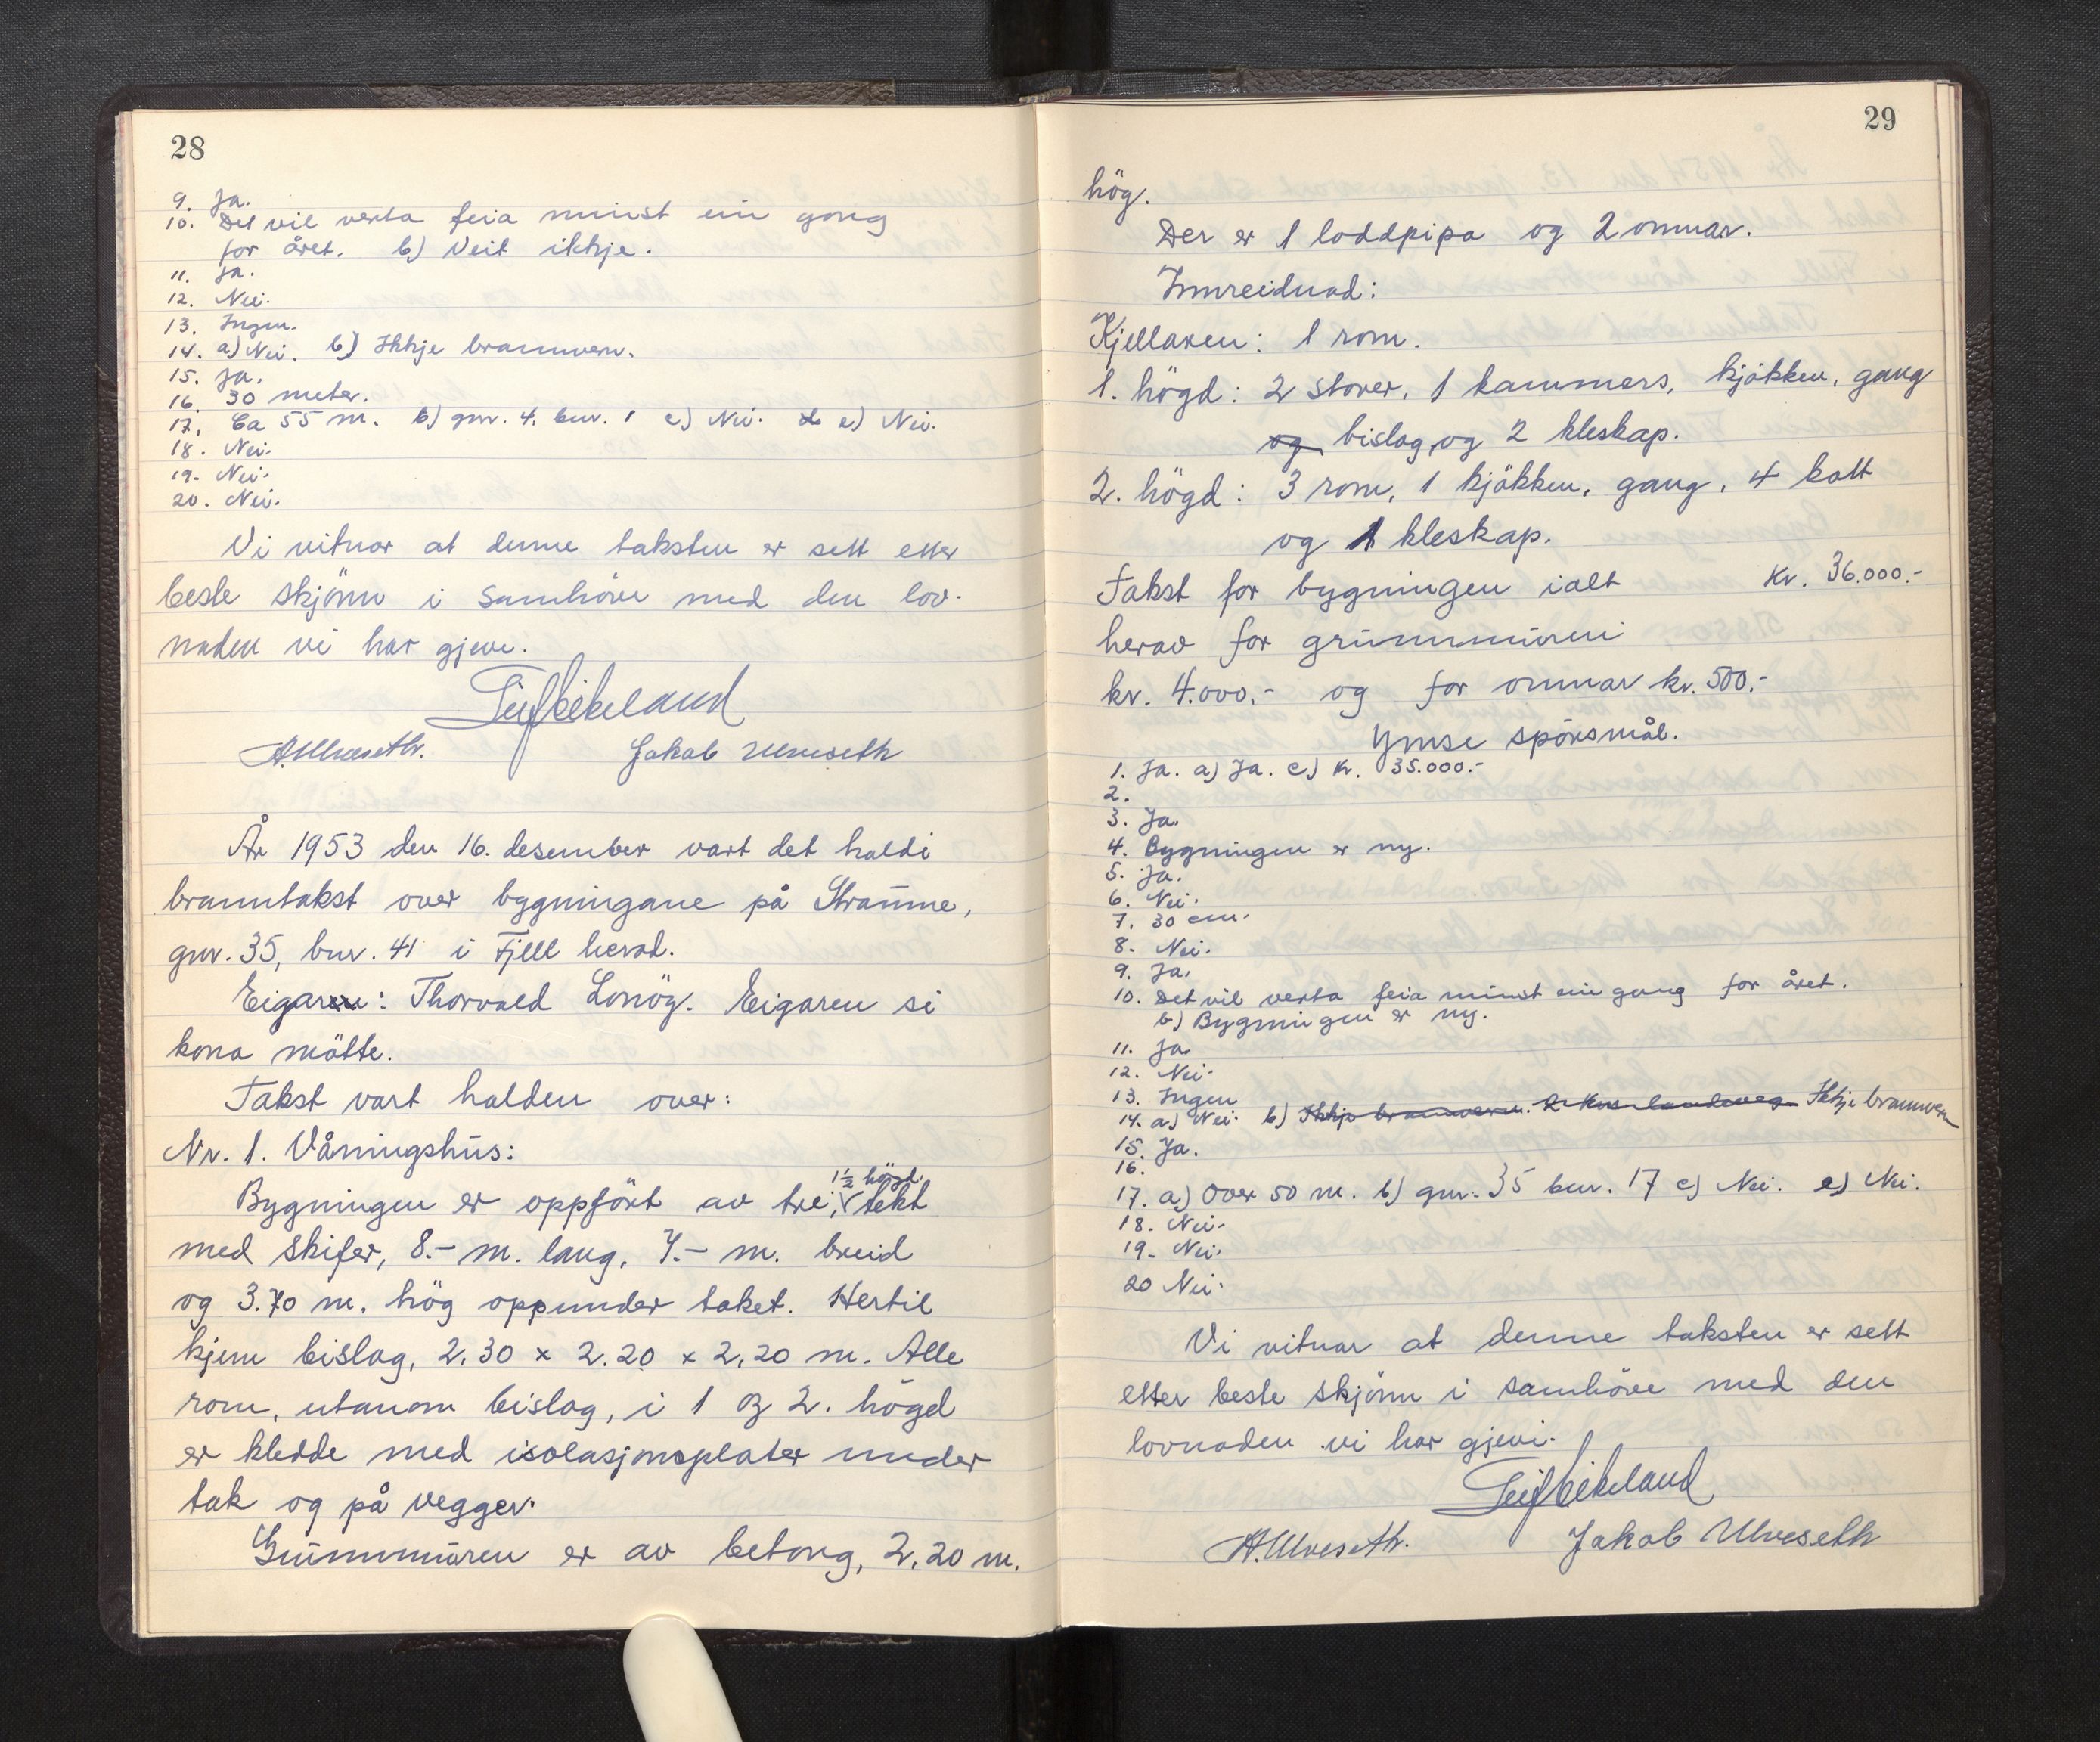 28
9. Ja.
10. Det vil verta feia minst ein gong
for året. b) Veit ikkje.
11. Ja.
12. Nei.
13. Ingen.
14. a) Nei. b) Ikkje brannvern.
15. Ja.
16. 30 meter.
17. Ca 55 m. b) gnr. 4. bnr. 1 c) Nei. d e) Nei.
18. Nei.
19. Nei.
20. Nei.
Vi vitnar at denne taksten er sett etter
beste skjönn i samhöve med den lov-
naden vi har gjeve.
Leif Eikeland
A. Ulveseth. Jakob Ulveseth
År 1953 den 16. desember vart det haldi
branntakst over bygningane på Straume,
gnr. 35, bnr. 41 i Fjell herad.
Eigaren: Thorvald Lonöy. Eigaren si
kona mötte.
Takst vart halden over:
Nr. 1. Våningshus:
1½ högd.
Bygningen er oppfört av tre, tekt
med skifer, 8.- m. lang, 7.- m. breid
og 3.70 m. hög oppunder taket. Hertil
kjem bislag, 2.30 x 2.20 x 2,20 m. Alle
rom, utanom bislag, i 1 og 2. högd
er kledde med isolasjonsplater under
tak og på vegger.
Grunnmuren er av betong, 2,20 m.
29
hög.
Der er 1 loddpipa og 2 omnar.
Innreidnad:
Kjellaren: 1 rom.
1. högd: 2 stover, 1 kammers, kjökken, gang
og bislag, og 2 kleskap.
2. högd: 3 rom, 1 kjökken, gang, 4 kott
og 1 kleskap.
Takst for bygningen ialt kr. 36.000.-
herav for grunnmuren
kr. 4.000.- og for omnar kr. 500.-
Ymse spörsmål.
1. Ja. a) Ja. c) Kr. 35.000.-
2.
3. Ja.
4. Bygningen er ny.
5. Ja.
6. Nei.
7. 30 cm.
8. Nei.
9. Ja.
10. Det vil verta feia minst ein gang for året.
b) Bygningen er ny.
11. Ja
12. Nei.
13. Ingen
14. a) Nei. b) Ikkje brannvern. Ikkje brannvern
15. Ja.
16.
17. a) Over 50 m. b) gnr. 35 bnr. 17 c) Nei. e) Nei.
18. Nei.
19. Nei.
20 Nei.
Vi vitnar at denne taksten er sett
etter beste skjönn i samhöve med den
lovnaden vi har gjevi.
Leif Eikeland
A. Ulveseth. Jakob Ulveseth